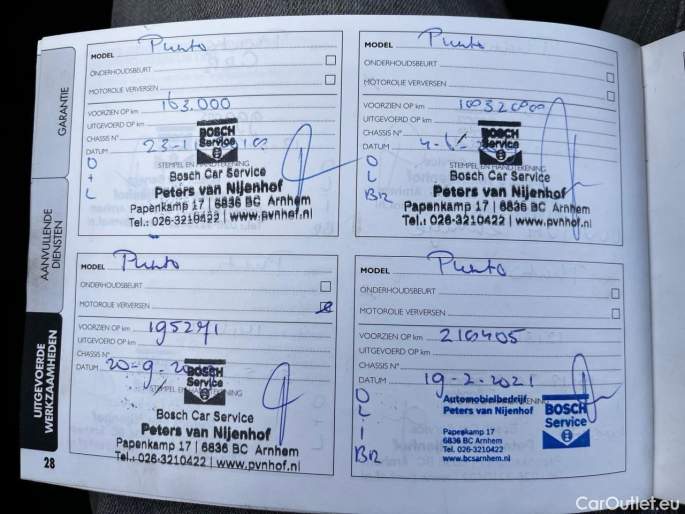 GARANTIE
AANVULLENDE
DIENSTEN
UITGEVOERDE
WERKZAAMHEDEN
28
MODEL Punto
ONDERHOUDSBEURT
MOTOROLIE VERVERSEN
VOORZIEN OP km 163.000
UITGEVOERD OP km
CHASSIS N°
DATUM 23-11
STEMPEL EN HANDTEKENING
O
+
L
BOSCH
Service
Bosch Car Service
Peters van Nijenhof
Papenkamp 17 | 6836 BC Arnhem
Tel.: 026-3210422 | www.pvnhof.nl
MODEL Punto
ONDERHOUDSBEURT
MOTOROLIE VERVERSEN
VOORZIEN OP km
UITGEVOERD OP km
CHASSIS N°
DATUM
STEMPEL EN HANDTEKENING
O
L
BR
BOSCH
Service
Bosch Car Service
Peters van Nijenhof
Papenkamp 17 | 6836 BC Arnhem
Tel.: 026-3210422 | www.pvnhof.nl
MODEL Punto
ONDERHOUDSBEURT
MOTOROLIE VERVERSEN
VOORZIEN OP km 195271
UITGEVOERD OP km
CHASSIS N°
DATUM 20-9-20
STEMPEL EN HANDTEKENING
BOSCH
Service
Bosch Car Service
Peters van Nijenhof
Papenkamp 17 | 6836 BC Arnhem
Tel.: 026-3210422 | www.pvnhof.nl
MODEL Punto
ONDERHOUDSBEURT
MOTOROLIE VERVERSEN
VOORZIEN OP km 218405
UITGEVOERD OP km
CHASSIS N°
DATUM 19-2-2021
O
L
I
BR
Automobielbedrijf
Peters van Nijenhof
Papenkamp 17
6836 BC Arnhem
Tel. 026-3210422
www.bcsarnhem.nl
BOSCH
Service
CarOutlet.eu